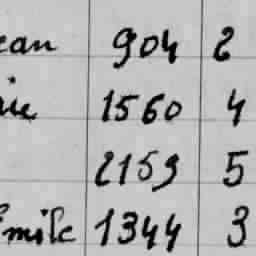 ean 904 2
rie 1560 4
2159 5
Emile 1344 3